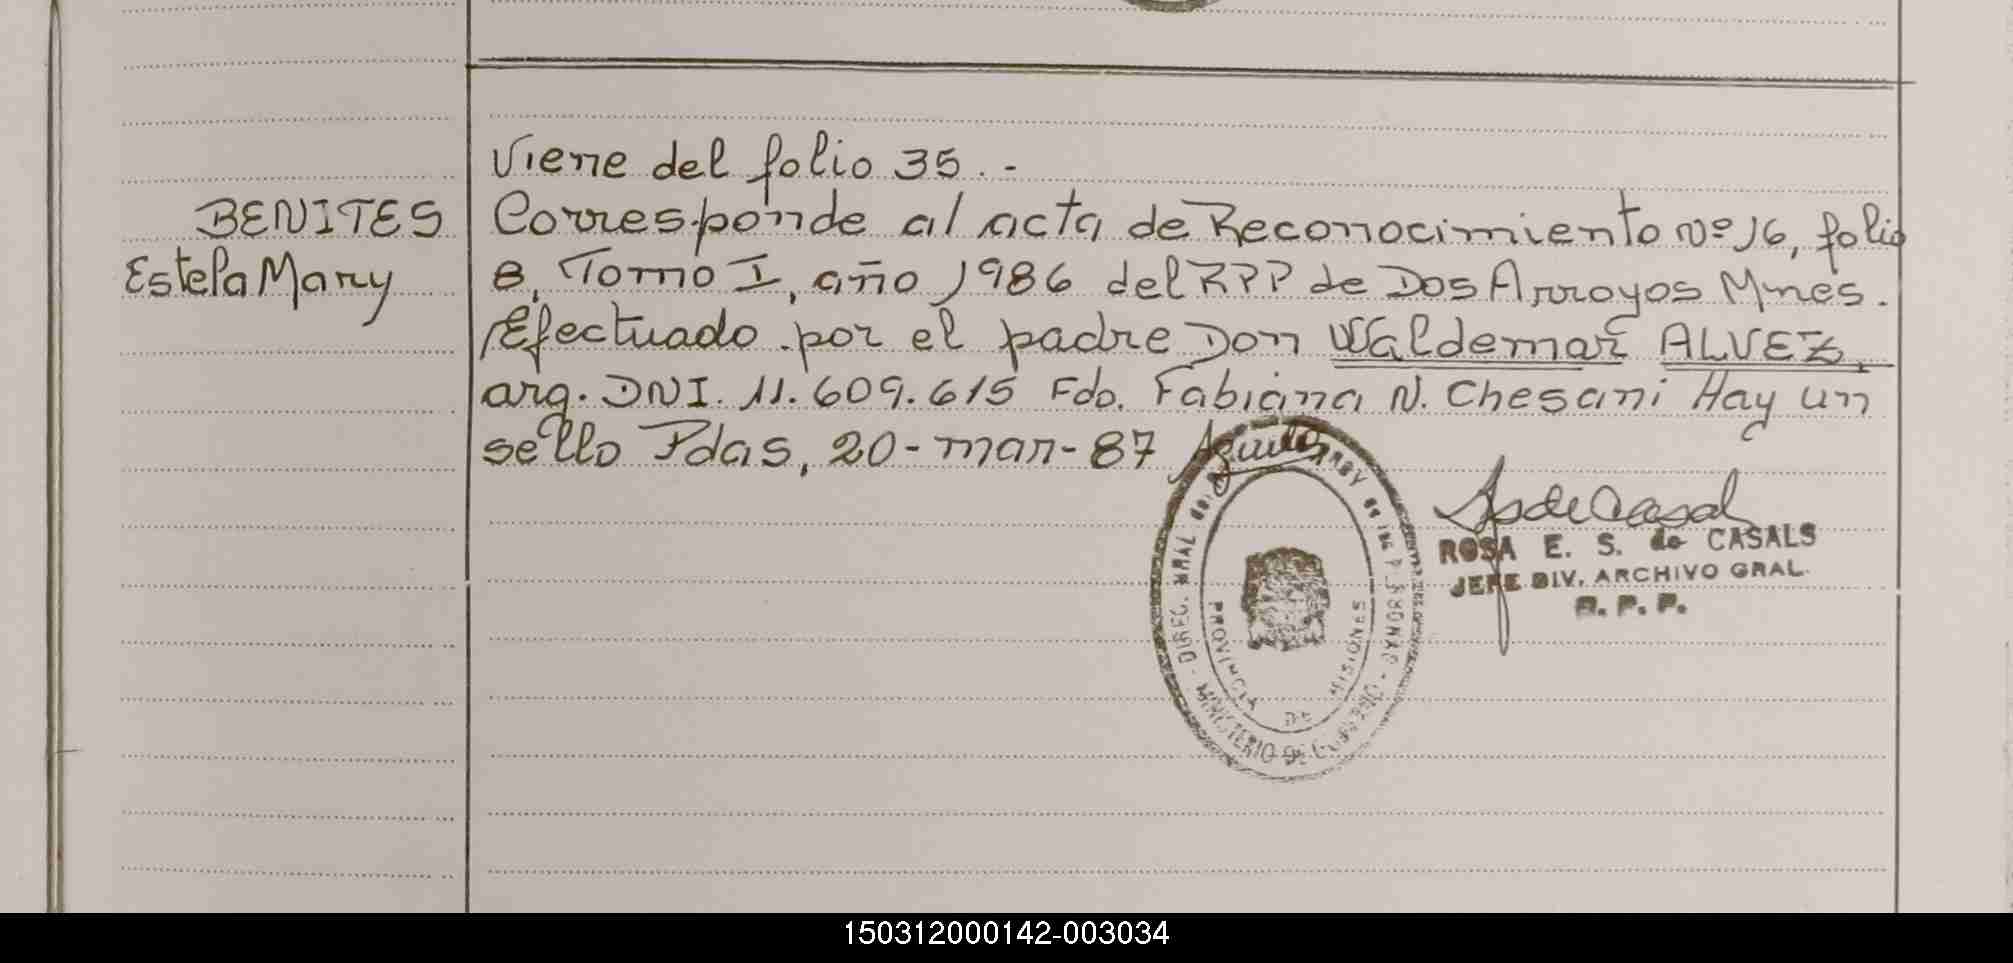 Viene del folio 35.-
BENITES
Corresponde al acta de Reconocimiento Nº 16, folio
Estela Mary
8, Tomo I, año 1986 del RPP de Dos Arroyos Mnes.
Efectuado por el padre Don Waldemar ALVEZ,
arg. DNI. 11.609.615 Fdo. Fabiana N. Chesani Hay un
sello Pdas, 20-mar-87
ROSA E. S. de CASALS
JEFE DIV. ARCHIVO GRAL.
R. P. P.
PROVINCIA DE MISIONES
MINISTERIO DE GOBIERNO
150312000142-003034